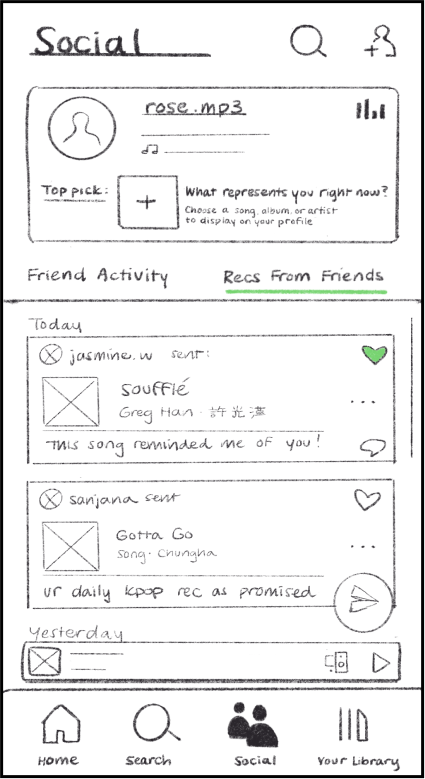 Social
rose.mp3
Top pick:
What represents you right now?
Choose a song, album, or artist
to display on your profile
Friend Activity
Recs From Friends
Today
jasmine.w sent:
Soufflé
Greg Han · 許光漢
This song reminded me of you!
sanjana sent
Gotta Go
Song · Chungha
ur daily kpop rec as promised
Yesterday
Home
Search
Social
Your Library